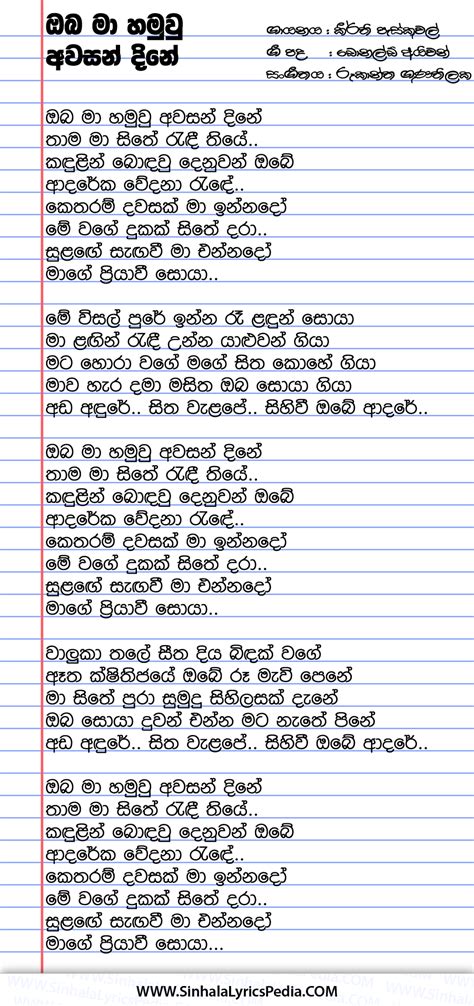 ඔබ මා හමුවු
අවසන් දිනේ
ගායනය : කීර්ති පැස්කුවල්
ගී පද : ඩොනල්ඩ් අයිවන්
සංගීතය : රුකන්ත ගුණතිලක
ඔබ මා හමුවු අවසන් දිනේ
තාම මා සිතේ රැඳී තියේ..
කඳුළින් බොඳවු දෙනුවන් ඔබේ
ආදරේක වේදනා රැඳේ..
කෙතරම් දවසක් මා ඉන්නදෝ
මේ වගේ දුකක් සිතේ දරා..
සුළඟේ සැඟවී මා එන්නදෝ
මාගේ ප්‍රියාවී සොයා..
මේ විසල් පුරේ ඉන්න රෑ ළඳුන් සොයා
මා ළඟින් රැඳී උන්න යාළුවන් ගියා
මට හොරා වගේ මගේ සිත කොහේ ගියා
මාව හැර දමා මසිත ඔබ සොයා ගියා
අඩ අඳුරේ.. සිත වැළපේ.. සිහිවී ඔබේ ආදරේ..
ඔබ මා හමුවු අවසන් දිනේ
තාම මා සිතේ රැඳී තියේ..
කඳුළින් බොඳවු දෙනුවන් ඔබේ
ආදරේක වේදනා රැඳේ..
කෙතරම් දවසක් මා ඉන්නදෝ
මේ වගේ දුකක් සිතේ දරා..
සුළඟේ සැඟවී මා එන්නදෝ
මාගේ ප්‍රියාවී සොයා..
වාලුකා තලේ සීත දිය බිඳක් වගේ
ඈත ක්ෂිතිජයේ ඔබේ රූ මැවි පෙනේ
මා සිතේ පුරා සුමුදු සිහිලසක් දැනේ
ඔබ සොයා දුවන් එන්න මට නැතේ පිනේ
අඩ අඳුරේ.. සිත වැළපේ.. සිහිවී ඔබේ ආදරේ..
ඔබ මා හමුවු අවසන් දිනේ
තාම මා සිතේ රැඳී තියේ..
කඳුළින් බොඳවු දෙනුවන් ඔබේ
ආදරේක වේදනා රැඳේ..
කෙතරම් දවසක් මා ඉන්නදෝ
මේ වගේ දුකක් සිතේ දරා..
සුළඟේ සැඟවී මා එන්නදෝ
මාගේ ප්‍රියාවී සොයා...
WWW.SinhalaLyricsPedia.COM